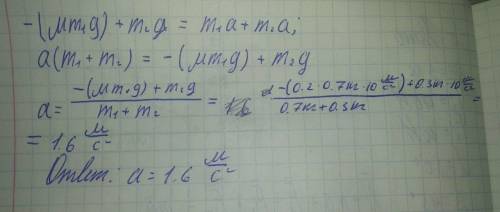 -(μm₁g) + m₂g = m₁a + m₂a;
a(m₁ + m₂) = -(μm₁g) + m₂g
a = (-(μm₁g) + m₂g)/(m₁ + m₂) = (-(0.2·0.7кг·10 м/с²) + 0.3кг·10 м/с²)/(0.7кг + 0.3кг) =
= 1.6 м/с²
Ответ: a = 1.6 м/с²